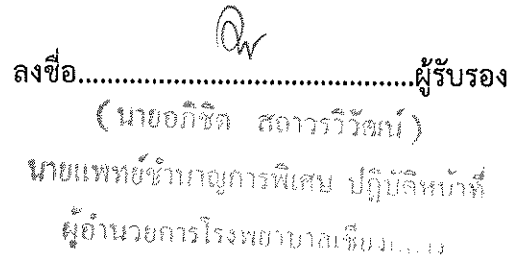 ลงชื่อ.............................................ผู้รับรอง
(นายอภิชิต สถาวรวิวัฒน์)
นายแพทย์ชำนาญการพิเศษ ปฏิบัติหน้าที่
ผู้อำนวยการโรงพยาบาล